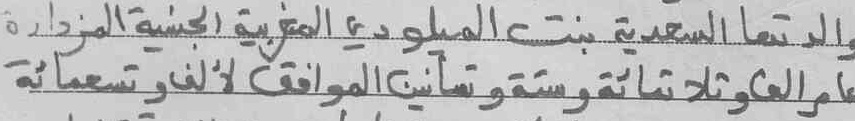 والدتها السعدية بنت الميلودي المغربية الجنسية المزدادة
عام ألف وثلاثمائة وستة وثمانين الموافق لألف وتسعمائة